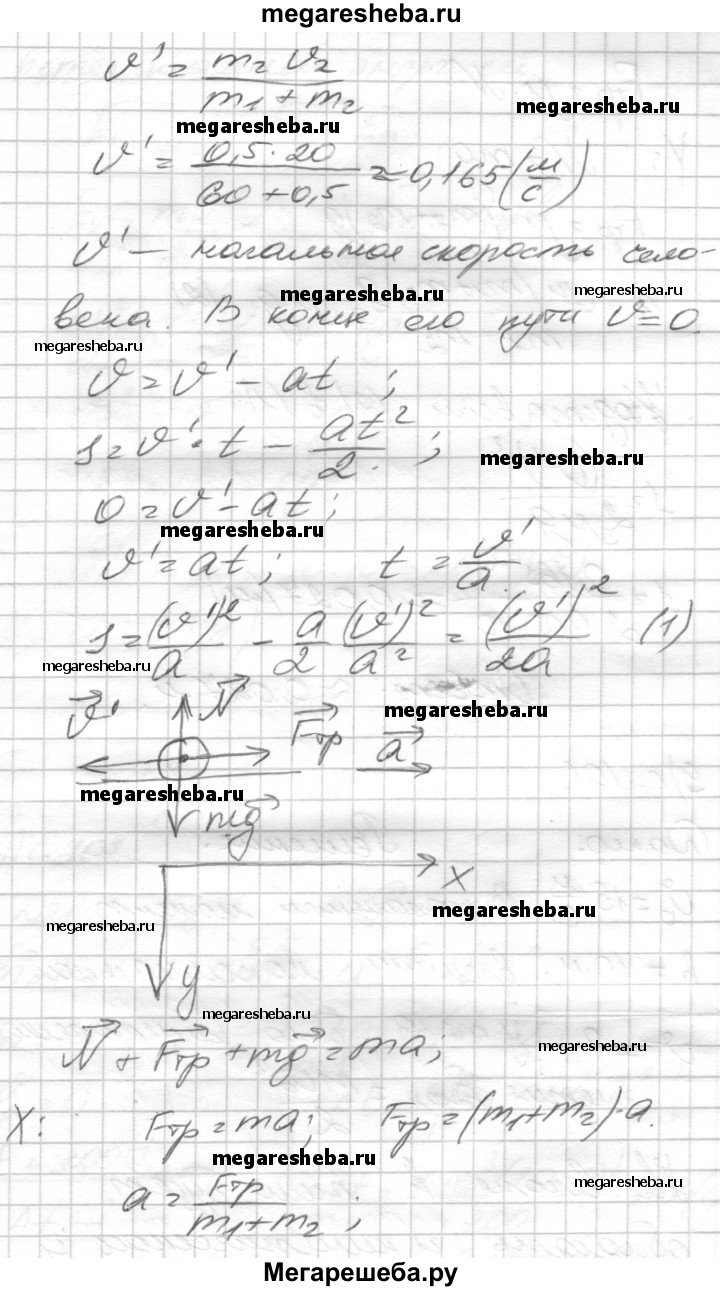 megaresheba.ru
v' = m₂ v₂ / (m₁ + m₂)
megaresheba.ru
megaresheba.ru
v' = 0,5 · 20 / (60 + 0,5) ≈ 0,165 (м/с)
v' – начальная скорость чело-
megaresheba.ru
megaresheba.ru
века. В конце его пути v = 0.
megaresheba.ru
v = v' – at ;
s = v' · t – at²/2 ;
megaresheba.ru
0 = v' – at ;
megaresheba.ru
v' = at ; t = v'/a.
s = (v')²/a – a/2 (v')²/a² = (v')²/2a (1)
megaresheba.ru
v⃗' N⃗ F⃗тр a⃗
megaresheba.ru
megaresheba.ru
mg⃗
x
megaresheba.ru
megaresheba.ru
y
megaresheba.ru
N⃗ + F⃗тр + mg⃗ = ma ;
megaresheba.ru
X: Fтр = ma ; Fтр = (m₁ + m₂) · a.
megaresheba.ru
megaresheba.ru
a = Fтр / (m₁ + m₂) ;
Мегарешеба.ру